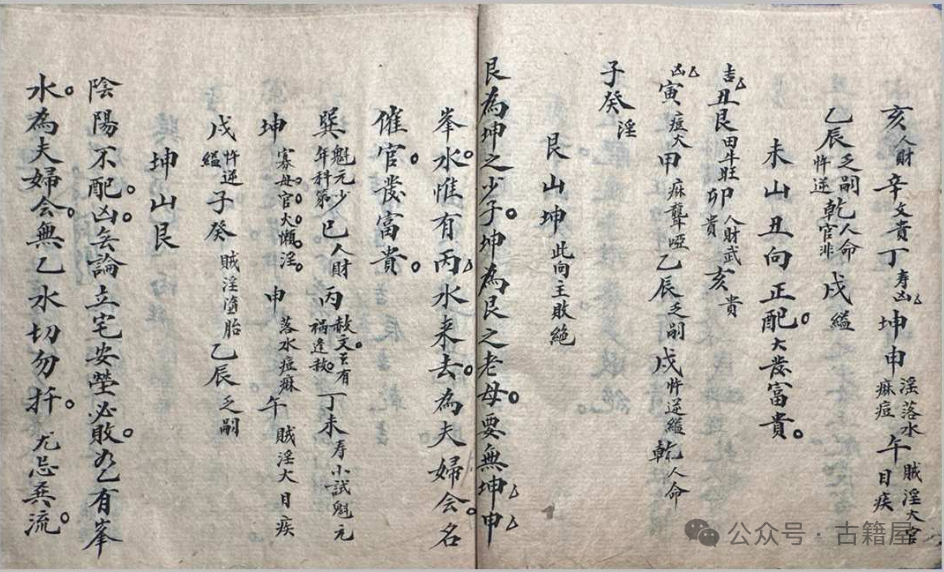 亥人財辛文貴丁寿凶坤申淫落水麻痘午賊淫大官目疾
乙辰乏嗣忤逆乾人命官非戌縊
未山丑向正配大發富貴
吉丑艮田牛旺卯人財武貴亥貴
凶寅痘犬甲麻聾啞乙辰乏嗣戌忤逆縊乾人命
子癸淫
艮山坤此向主敗絕
艮為坤之少子坤為艮之老母要無坤申
峯水惟有丙水来去為夫婦會名
催官發富貴
巽魁元少年科第巳人財丙赦文主有禍逢赦丁未寿小試魁元
坤寡母官火懶淫申落水痘麻午賊淫大目疾
戌忤逆縊子癸賊淫墮胎乙辰乏嗣
坤山艮
陰陽不配凶無論立宅安塋必敗如乙有峯
水為夫婦會無乙水切勿扦尤忌流
公众号 · 古籍屋